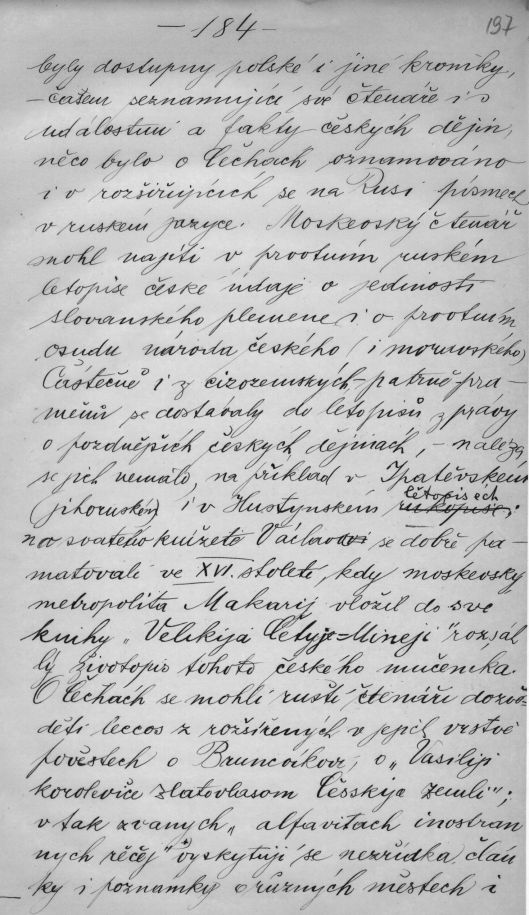 — 184 —
197
byly dostupny polské i jiné kroniky,
– časem seznamující své čtenáře i s
událostmi a fakty českých dějin,
něco bylo o Čechach oznamováno
i v rozšiřujících se na Rusi písmech
v ruském jazyce. Moskevský čtenář
mohl najíti v prvotním ruském
letopise české údaje o jedinosti
slovanského plemene i o prvotním
osudu národa českého (i moravského)
Částečně i z cizozemských – patrně pra-
menů se dostávaly do letopisů zprávy
o pozdnějších českých dějinách, – naleza
se jich nemálo, na příklad v Ipatěvském
(jihoruském) i v Hustynském rukopise;
létopisech
na svatého knížete Václava se dobře pa-
matovali ve XVI. století, kdy moskevský
metropolita Makarij vložil do své
knihy „Velikija Četyje=Mineji" rozsáh
lý životopis tohoto českého mučeníka.
O Čechach se mohli ruští čtenáři dozvě-
děti leccos z rozšířených v jejich vrstvě
pověstech o Bruncvíkovi, o „Vasiliji
koroleviče zlatovlasom Češskija zemli";
v tak zvaných „alfavitach inostran
nych rěčej" vyskytují se nezřídka člán
ky i poznamky o různých městech i